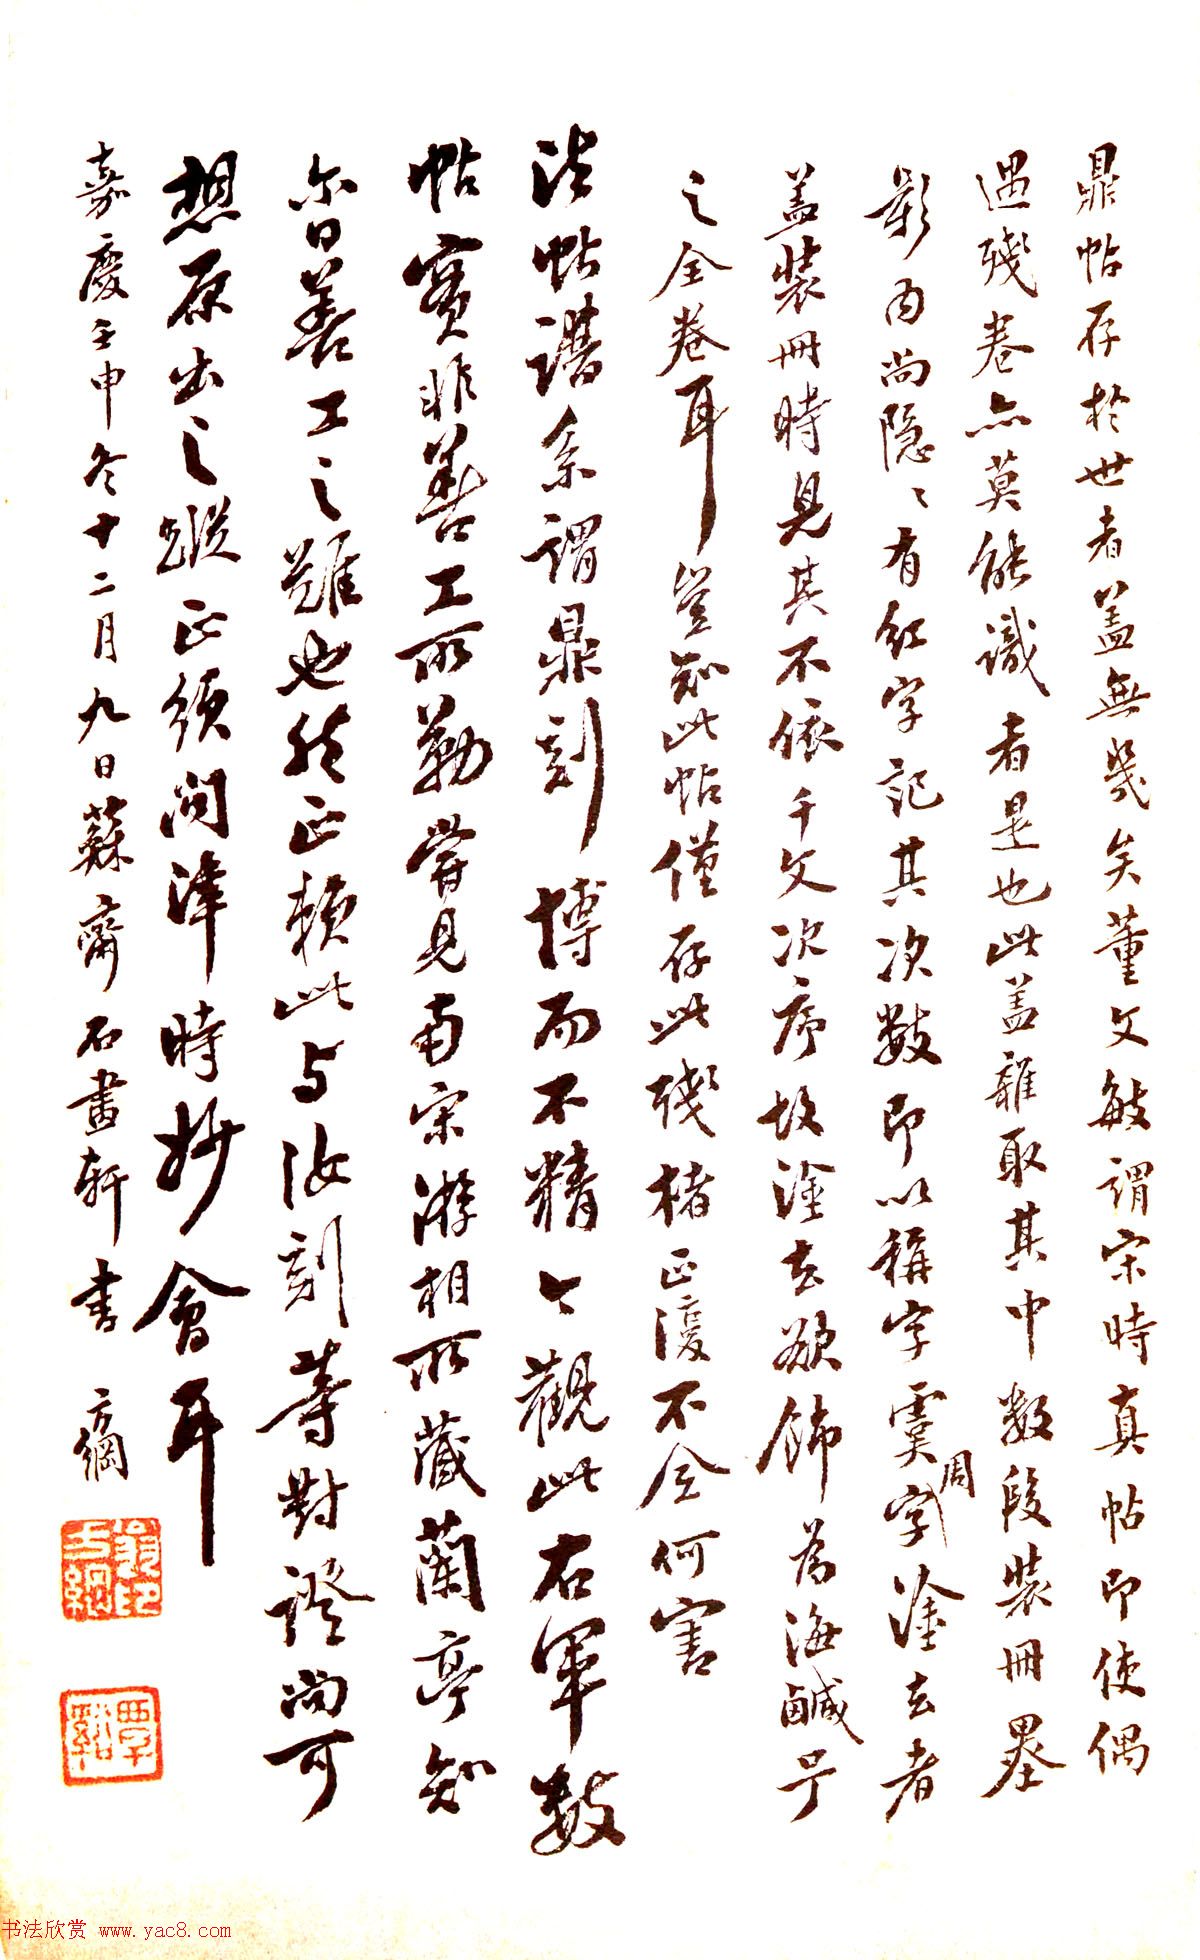 鼎帖存於世者蓋無幾矣董文敏謂宋時真帖即使偶
遇殘卷亦莫能識者是也此蓋雜取其中數段裝冊墨
影内尚隐隐有紅字記其次數即以稱字虞字塗去者
周
蓋裝冊時見其不依千文次序故塗去欲飾爲海鹹号
之全卷耳豈知此帖僅存此殘楮正復不全何害
法帖譜系謂鼎刻博而不精今觀此右軍數
帖實非善工所勒嘗見南宋游相所藏蘭亭知
尔日善工之難也然正賴此与汝刻等對證尚可
想原出之蹤正須問津時妙會耳
嘉慶壬申冬十二月九日蘇齋石畫軒書 方綱
翁方綱印
覃谿
书法欣赏 www.yac8.com